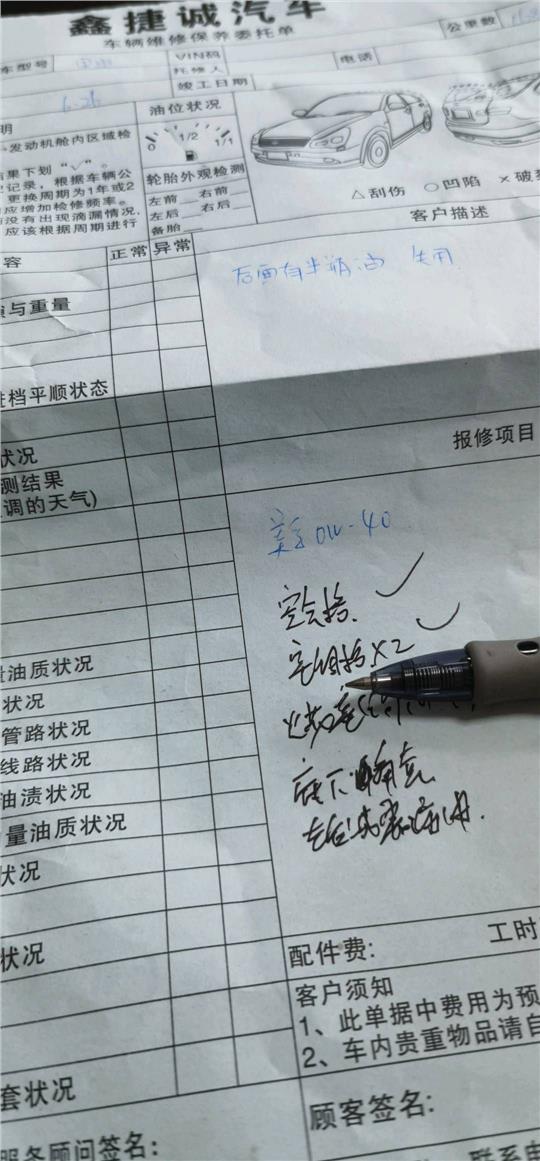 鑫捷诚汽车
车辆维修保养委托单
公里数
车型号
VIN码
托修人
电话
竣工日期
6.26
明
发动机舱内区域检
果下划“√”。
记录，根据车辆公
更换周期为1年或2
应增加检修频率。
没有出现滴漏情况，
应该根据周期进行
油位状况
0 1/2 1/1
轮胎外观检测
左前 右前
左后 右后
备胎
△刮伤 ○凹陷 ×破
客户描述
容 正常 异常
后面有半瓶油
与重量
进档平顺状态
状况
测结果
调的天气)
报修项目
0W-40
空气格
空调格X2
量油质状况
状况
管路状况
线路状况
油渍状况
量油质状况
状况
状况
套状况
配件费:
工时
客户须知
1、此单据中费用为预
2、车内贵重物品请自
顾客签名:
服务顾问签名:
联系电